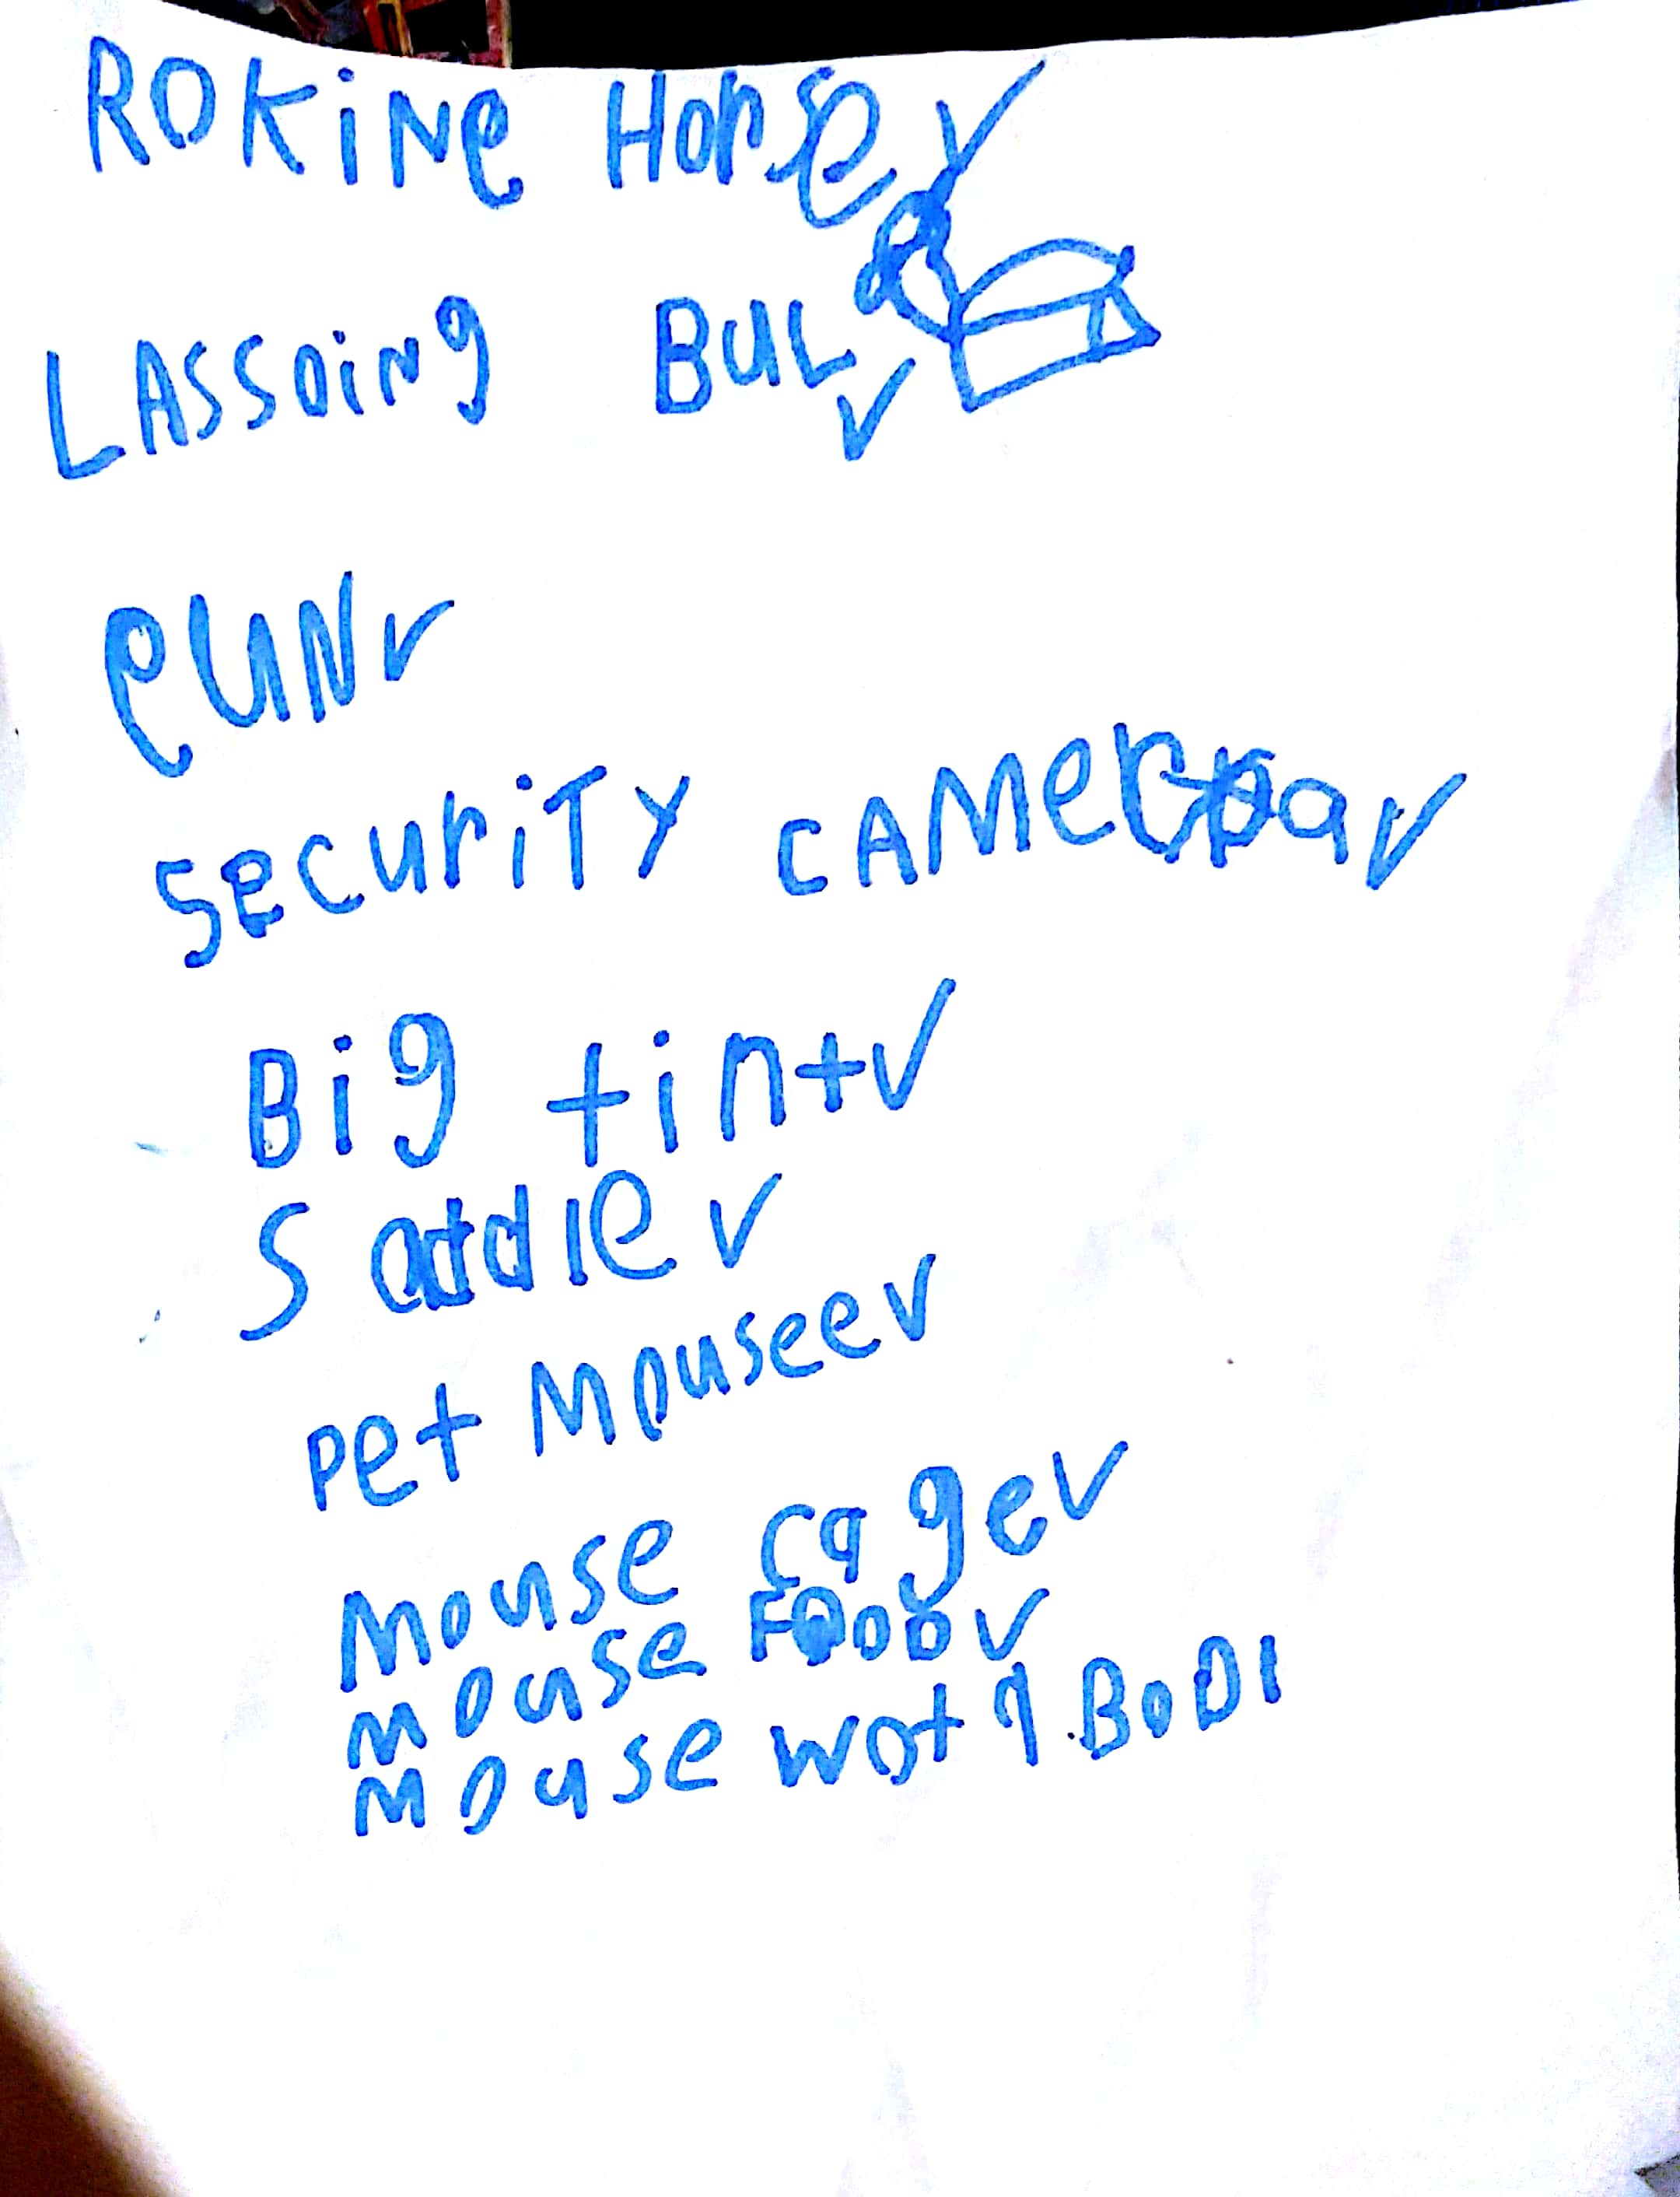 ROKiNe HORSe ✓
LASSOiNg BUL ✓
eUN ✓
SecuriTy CAMera ✓
Big tint ✓
Saddle ✓
Pet Mousee ✓
Mouse cage ✓
Mouse FOOD ✓
Mouse wot